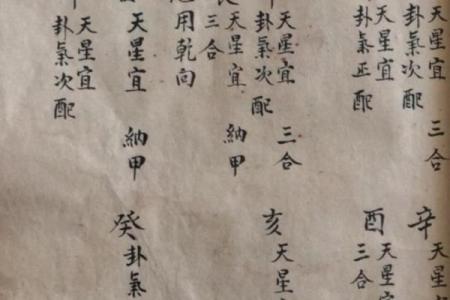 天星宜 三合
卦氣次配
天星宜
卦氣正配
天星宜 三合
卦氣次配
天星宜 納甲
三合
用乾向
天星宜 納甲
天星宜
卦氣次配
辛 天星
酉 天星宜
三合
亥 天星
癸 卦氣